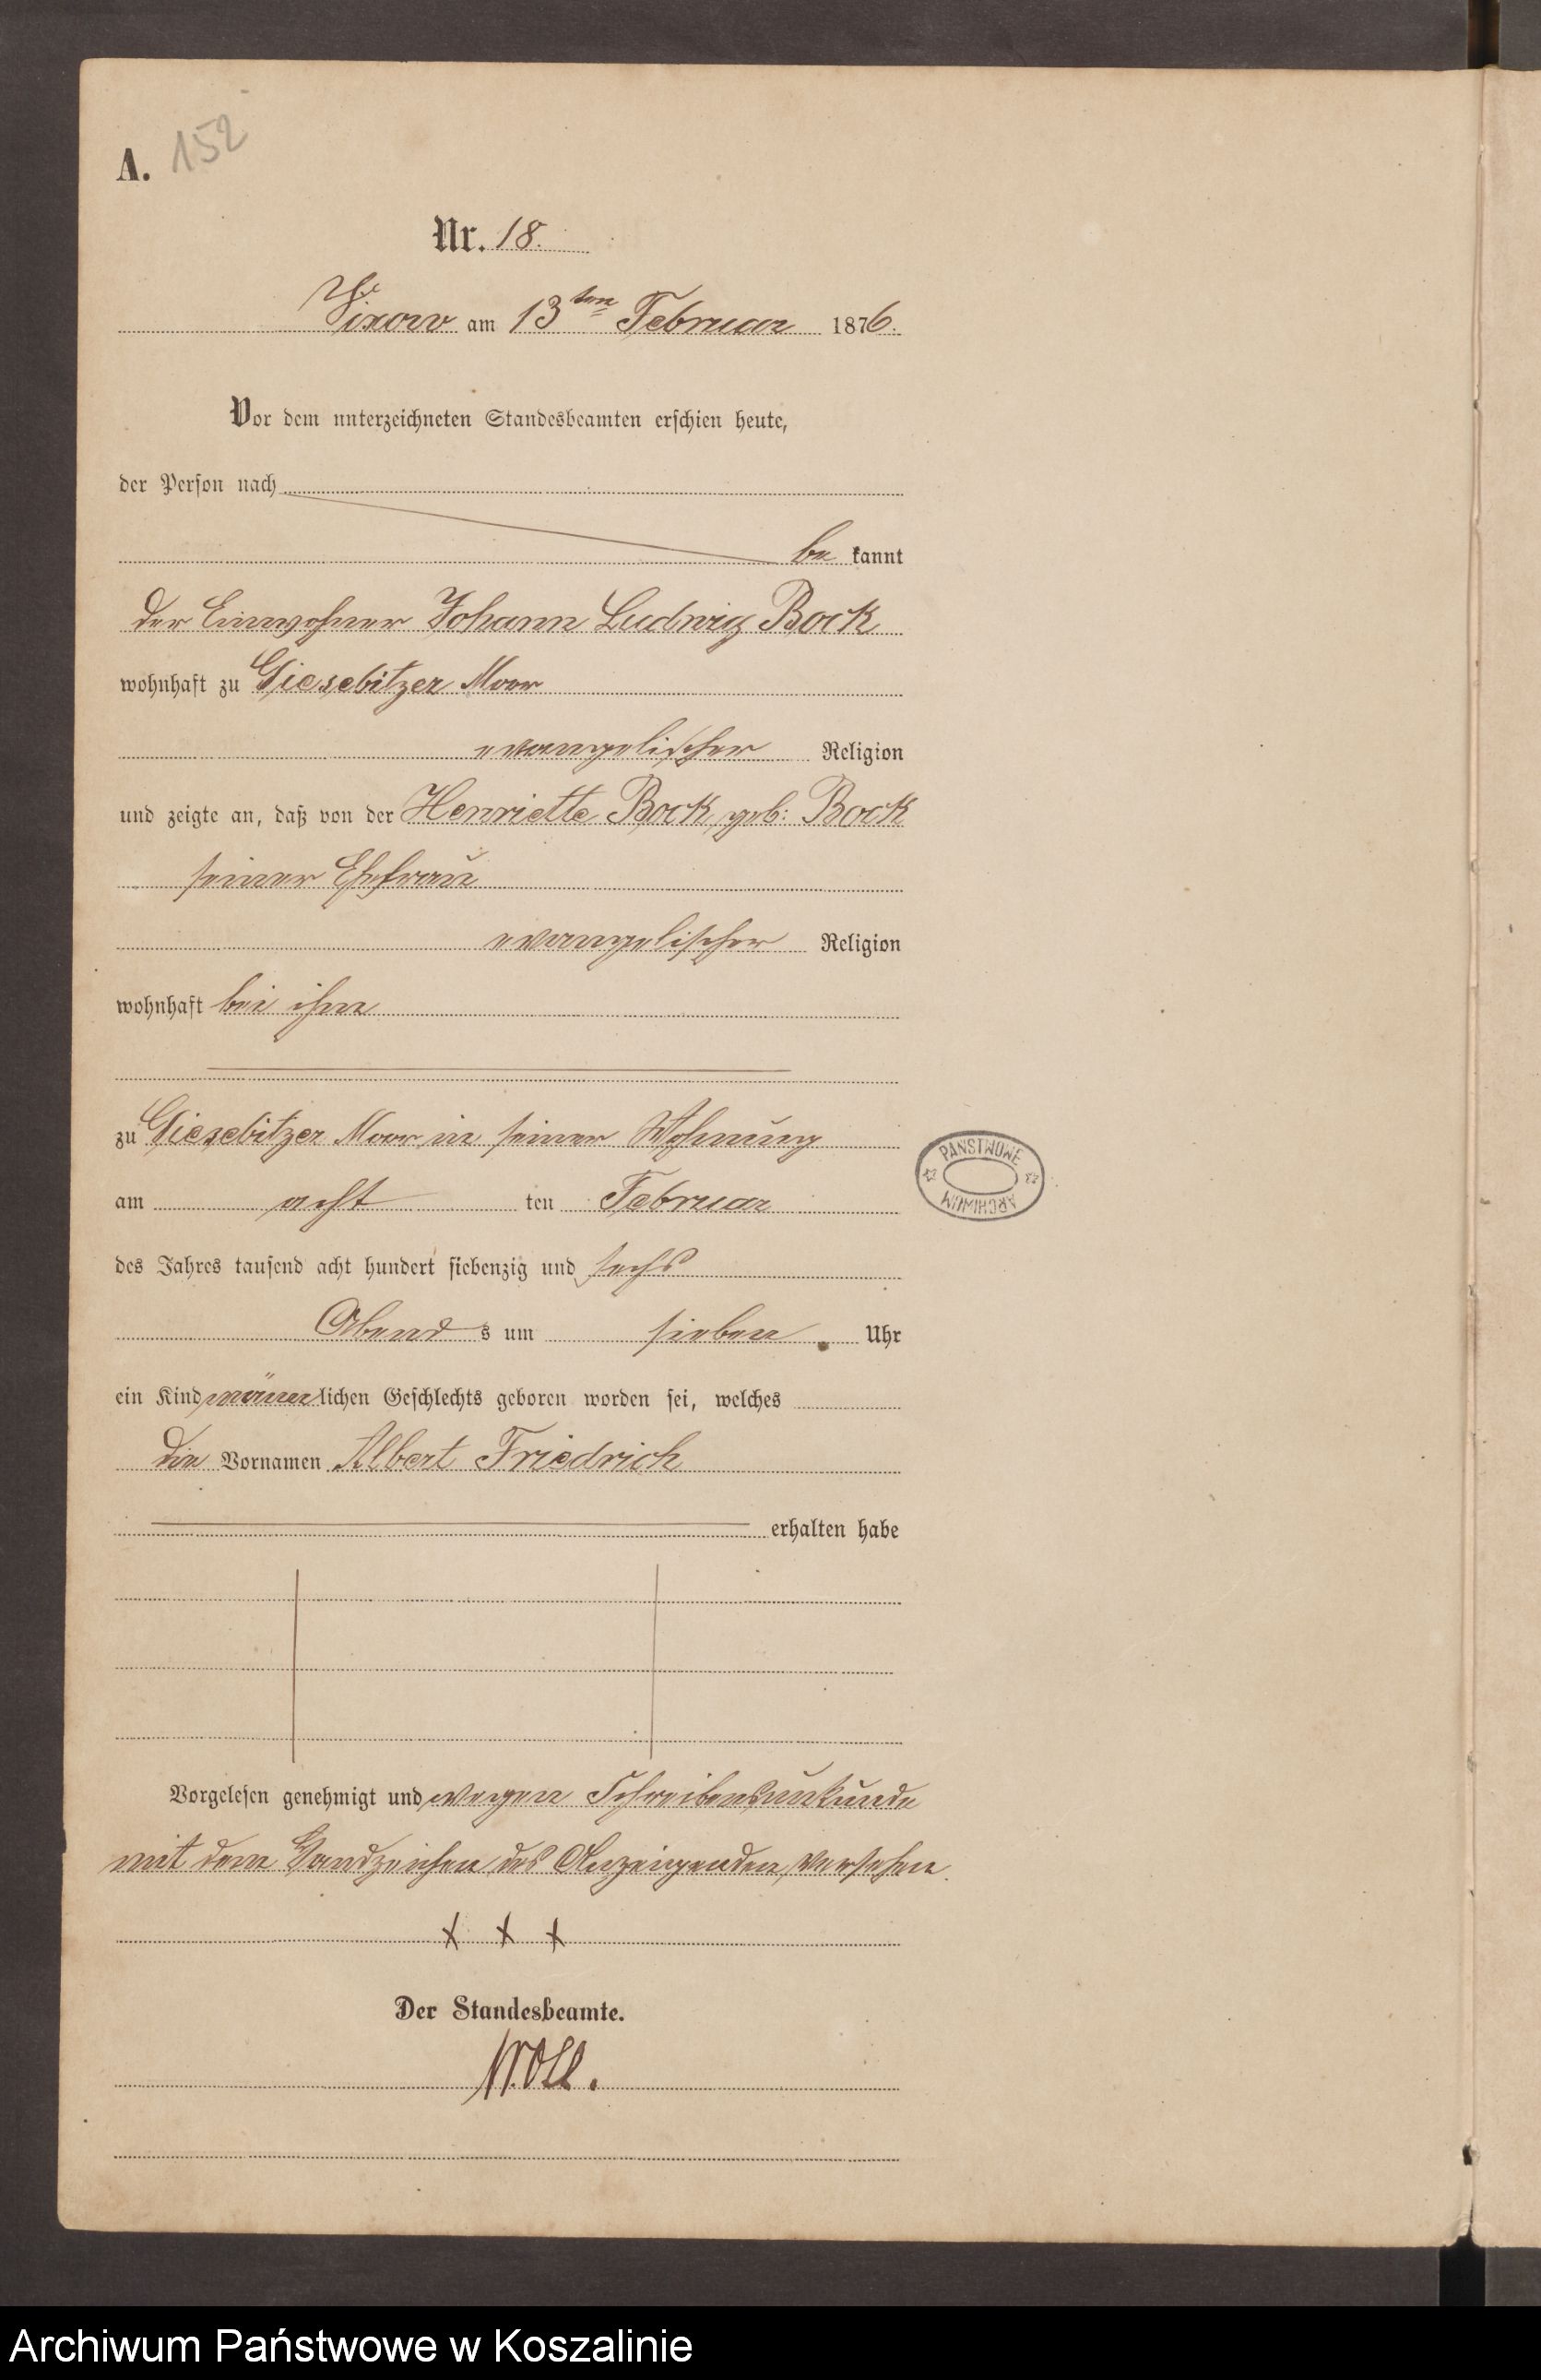 A. 152
Nr. 18.
Vixow am 13ten Februar 1876.
Vor dem unterzeichneten Standesbeamten erschien heute,
der Person nach
be kannt
der Einwohner Johann Ludwig Bock
wohnhaft zu Giesebitzer Moor
evangelischer Religion
und zeigte an, daß von der Henriette Bock, geb: Bock
seiner Ehefrau
evangelischer Religion
wohnhaft bei ihm
zu Giesebitzer Moor in seiner Wohnung
am acht ten Februar
des Jahres tausend acht hundert siebenzig und sechs
Abend s um sieben Uhr
ein Kind männlichen Geschlechts geboren worden sei, welches
die Vornamen Albert Friedrich
erhalten habe
Vorgelesen genehmigt und wegen Schreibensunkunde
mit dem Handzeichen des Anzeigenden versehen.
x x x
Der Standesbeamte.
PAŃSTWOWE
ARCHIWUM
Archiwum Państwowe w Koszalinie